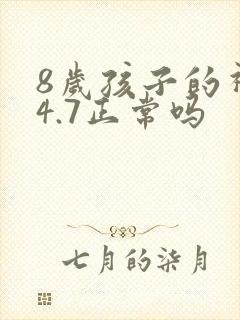 8歲孩子的
4.7正常吗
七月的柒月